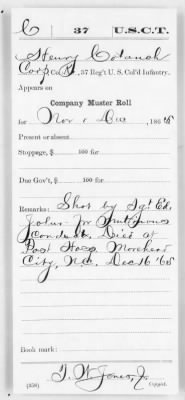 C 37 U.S.C.T.
Henry
Corp, Co. , 37 Reg't U. S. Col'd Infantry.
Appears on
Company Muster Roll
for Nov & Dec, 1865
Present or absent
Stoppage, $ 100 for
Due Gov't, $ 100 for
Remarks: Shot by Sgt Ed.
John
Died at
Post Hosp Morehead
City, N.C. Dec 16 '65
Book mark:
T. W. Jones, Jr
(358) Copyist.